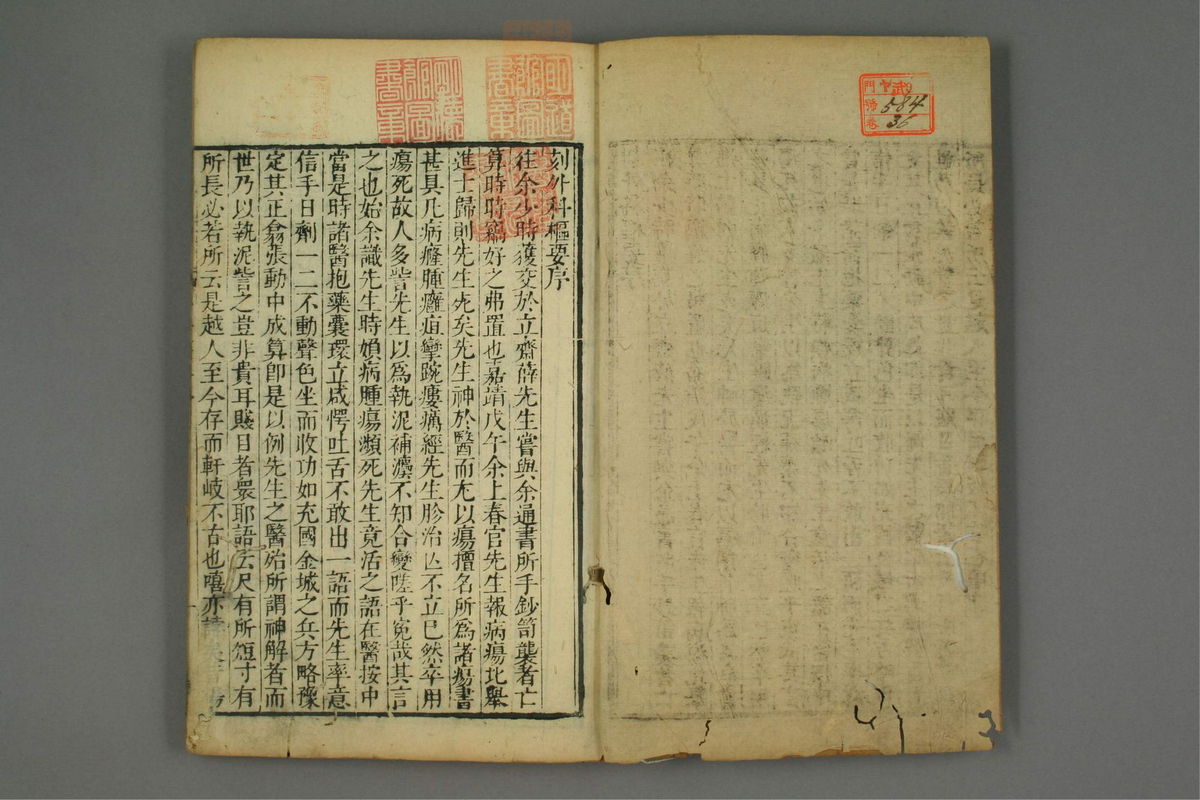 武
門
號
卷
584
36
刻外科樞要序
往余少時獲交於立齋薛先生嘗與余通書所手鈔笥襲者亡
算時時竊好之弗置也嘉靖戊午余上春官先生報病瘍北舉
進士歸則先生死矣先生神於醫而尤以瘍擅名所爲諸瘍書
甚具凡病癃腫癰疽攣踠瘻痛經先生胗治亾不立已然卒用
瘍死故人多訾先生以爲執泥補瀉不知合變嗟乎寃哉其言
之也始余識先生時嬪病腫瘍瀕死先生竟活之語在醫按中
當是時諸醫抱藥囊環立咸愕吐舌不敢出一語而先生率意
信手日劑一二不動聲色坐而收功如充國金城之兵方略豫
定其正翕張動中成算卽是以例先生之醫殆所謂神解者而
世乃以執泥訾之豈非貴耳賤目者衆耶語云尺有所短寸有
所長必若所云是越人至今存而軒岐不古也嘻亦